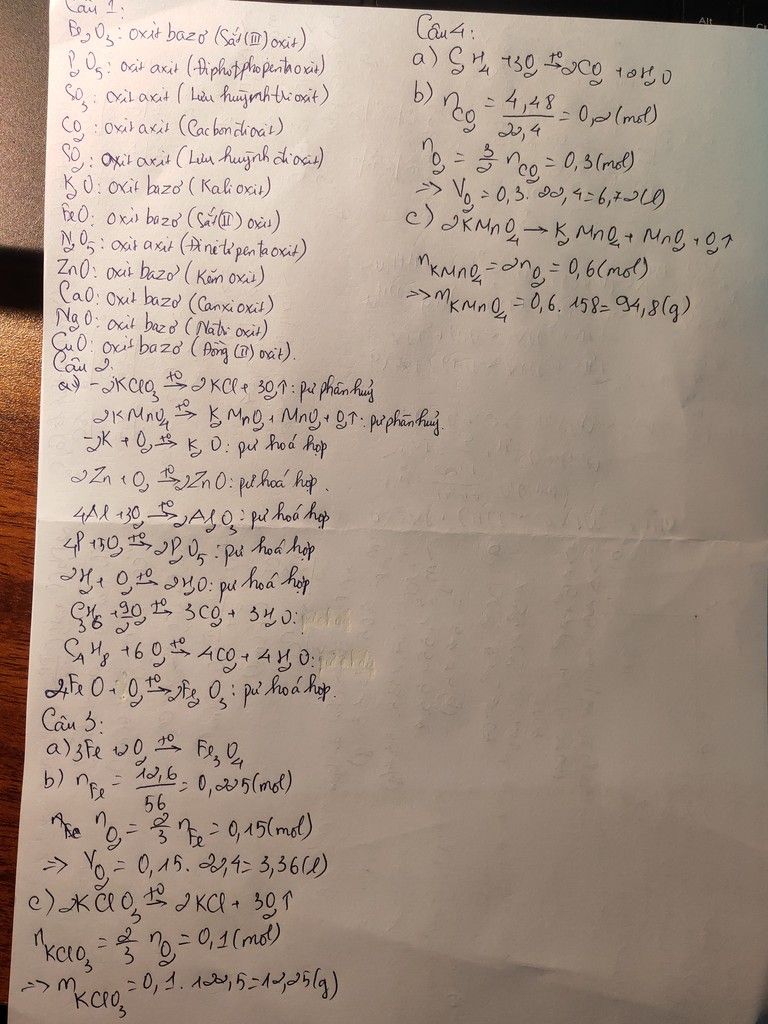 Câu 1:
Fe₂O₃: oxit bazơ (Sắt (III) oxit)
P₂O₅: oxit axit (Điphotpho pentaoxit)
SO₃: oxit axit (Lưu huỳnh trioxit)
CO₂: oxit axit (Cacbon đioxit)
SO₂: oxit axit (Lưu huỳnh đioxit)
K₂O: oxit bazơ (Kali oxit)
FeO: oxit bazơ (Sắt (II) oxit)
N₂O₅: oxit axit (Đinitơ pentaoxit)
ZnO: oxit bazơ (Kẽm oxit)
CaO: oxit bazơ (Canxi oxit)
NgO: oxit bazơ (Natri oxit)
CuO: oxit bazơ (Đồng (II) oxit).
Câu 2:
a) -2KClO₃ →(t°) 2KCl + 3O₂↑: pư phân huỷ
2KMnO₄ →(t°) K₂MnO₄ + MnO₂ + O₂↑: pư phân huỷ.
-2K + O₂ →(t°) K₂O: pư hoá hợp
2Zn + O₂ →(t°) 2ZnO: pư hoá hợp.
4Al + 3O₂ →(t°) 2Al₂O₃: pư hoá hợp
4P + 5O₂ →(t°) 2P₂O₅: pư hoá hợp
2H₂ + O₂ →(t°) 2H₂O: pư hoá hợp
C₃H₆ + 9/2O₂ →(t°) 3CO₂ + 3H₂O:
C₄H₈ + 6O₂ →(t°) 4CO₂ + 4H₂O:
4FeO + O₂ →(t°) 2Fe₂O₃: pư hoá hợp.
Câu 3:
a) 3Fe + 2O₂ →(t°) Fe₃O₄
b) n_Fe = 12,6/56 = 0,225(mol)
n_O₂ = 2/3 n_Fe = 0,15(mol)
=> V_O₂ = 0,15. 22,4 = 3,36(l)
c) 2KClO₃ →(t°) 2KCl + 3O₂↑
n_KClO₃ = 2/3 n_O₂ = 0,1(mol)
=> m_KClO₃ = 0,1. 122,5 = 12,25(g)
Câu 4:
a) C₂H₄ + 3O₂ →(t°) 2CO₂ + 2H₂O
b) n_CO₂ = 4,48/22,4 = 0,2(mol)
n_O₂ = 3/2 n_CO₂ = 0,3(mol)
=> V_O₂ = 0,3. 22,4 = 6,72(l)
c) 2KMnO₄ → K₂MnO₄ + MnO₂ + O₂↑
n_KMnO₄ = 2n_O₂ = 0,6(mol)
=> m_KMnO₄ = 0,6. 158 = 94,8(g)
Alt